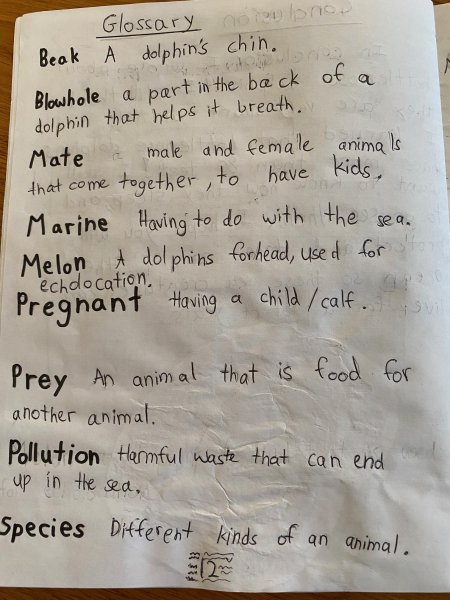 Glossary
Beak A dolphin's chin.
Blowhole a part in the back of a
dolphin that helps it breath.
Mate a male and female animals
that come together, to have kids.
Marine Having to do with the sea.
Melon A dolphins forhead, used for
echolocation.
Pregnant Having a child/calf.
Prey An animal that is food for
another animal.
Pollution Harmful waste that can end
up in the sea.
Species Different kinds of an animal.
12